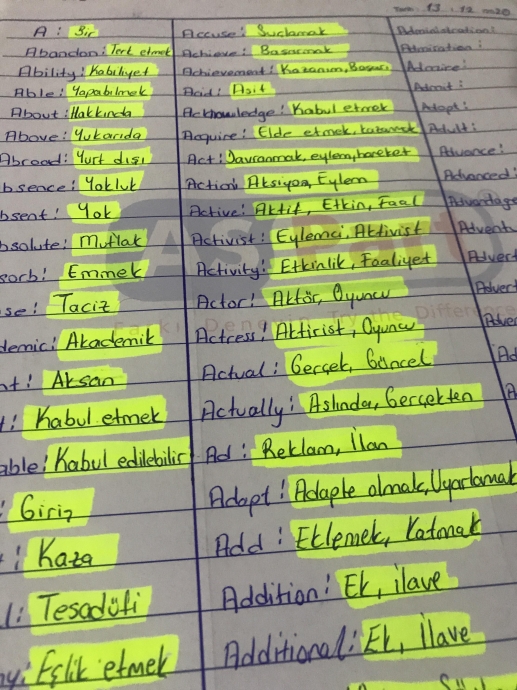 A: Bir
Abandon: Terk etmek
Ability: Kabiliyet
Able: Yapabilmek
About: Hakkında
Above: Yukarıda
Abroad: Yurt dışı
bsence: Yokluk
bsent: Yok
bsolute: Mutlak
sorb: Emmek
se: Taciz
demic: Akademik
nt: Aksan
t: Kabul etmek
able: Kabul edilebilir
: Giriş
t: Kaza
l: Tesadüfi
ny: Eşlik etmek
Accuse: Suçlamak
Achieve: Başarmak
Achievement: Kazanım, Başarı
Acid: Asit
Acknowledge: Kabul etmek
Acquire: Elde etmek, kazanmak
Act: Davranmak, eylem, hareket
Action: Aksiyon, Eylem
Active: Aktif, Etkin, Faal
Activist: Eylemci, Aktivist
Activity: Etkinlik, Faaliyet
Actor: Aktör, Oyuncu
Actress: Aktirist, Oyuncu
Actual: Gerçek, Güncel
Actually: Aslında, Gerçekten
Ad: Reklam, İlan
Adapt: Adapte olmak, Uyarlamak
Add: Eklemek, Katmak
Addition: Ek, ilave
Additional: Ek, İlave
Administration:
Admiration:
Admire:
Admit:
Adopt:
Adult:
Advance:
Advanced:
Advantage
Advent
Advert
Advert
Adver
Ad
A